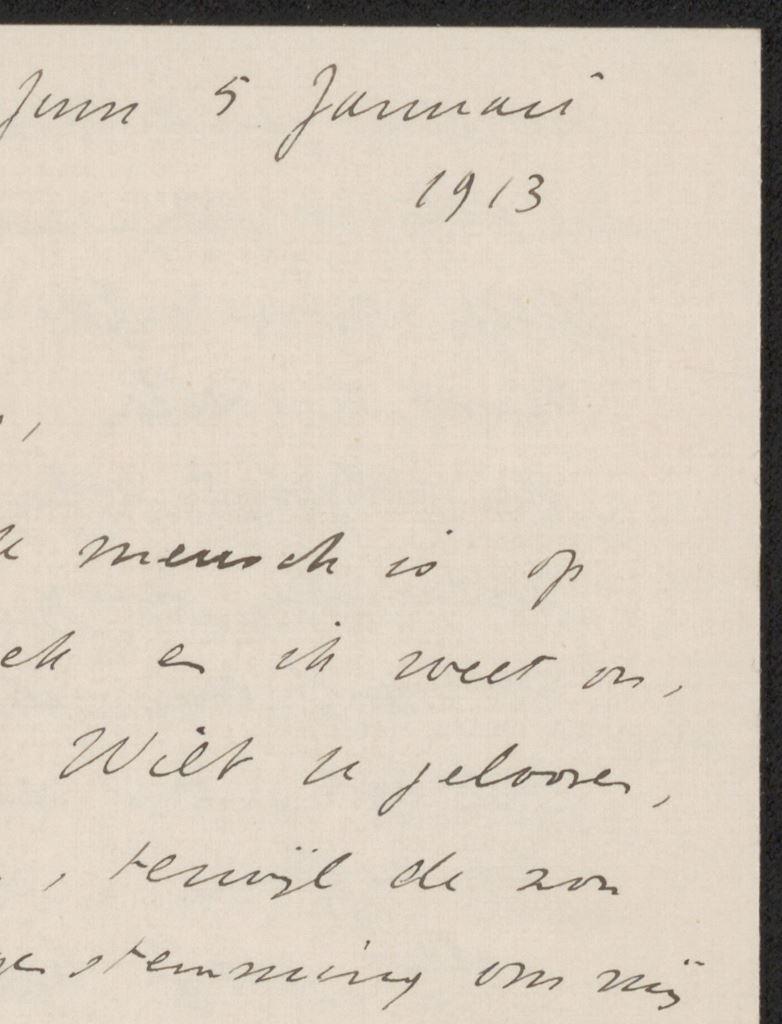 5 Januari
1913
,
mensch is op
en ik weet on,
Wilt u gelooven,
, terwijl de zon
stemming om mij